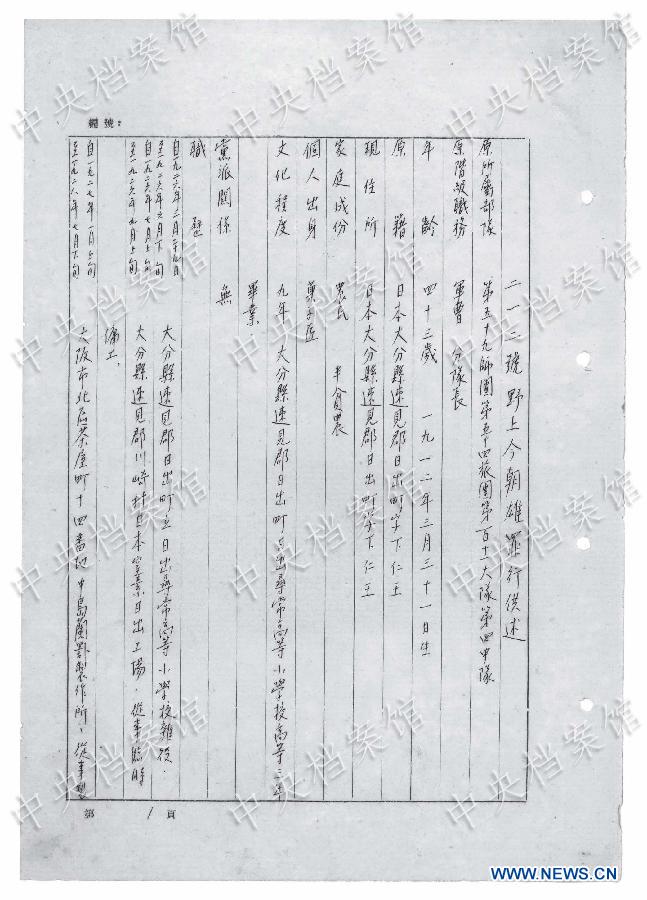 編號：
二一二號 野上今朝雄 罪行供述
原所屬部隊 第五十九師團第五十四旅團第百十一大隊第四中隊
原階級職務 軍曹 分隊長
年齡 四十三歲 一九一二年三月三十一日生
原籍 日本大分縣速見郡日出町字下仁王
現住所 日本大分縣速見郡日出町字下仁王
家庭成份 農民 半貧農
個人出身 菓子匠
文化程度 九年 大分縣速見郡日出町立日出尋常高等小學校高等三年
畢業．
黨派關係 無
職歷
自一九二六年二月二十九日
至一九二六年六月下旬 大分縣速見郡日出町立日出尋常高等小學校雜役．
自一九二六年七月上旬
至一九二六年九月上旬 大分縣速見郡川崎村日本窒素日出工場．從事臨時
傭工．
自一九二七年一月上旬
至一九二八年七月下旬 大阪市北區茶屋町十四番地中島蘭製作所，從事製
第 1 頁
中央档案馆
WWW.NEWS.CN